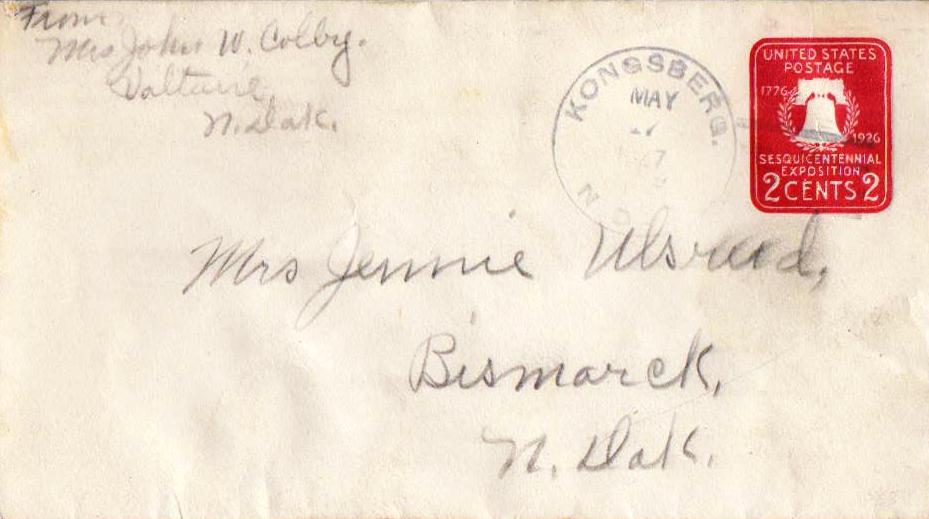 From
Mrs John W. Colby.
Voltaire,
N. Dak.
KONGSBERG.
MAY
7
N
UNITED STATES
POSTAGE
1776
1926
SESQUICENTENNIAL
EXPOSITION
2 CENTS 2
Mrs Jennie Ulsrud,
Bismarck,
N. Dak.